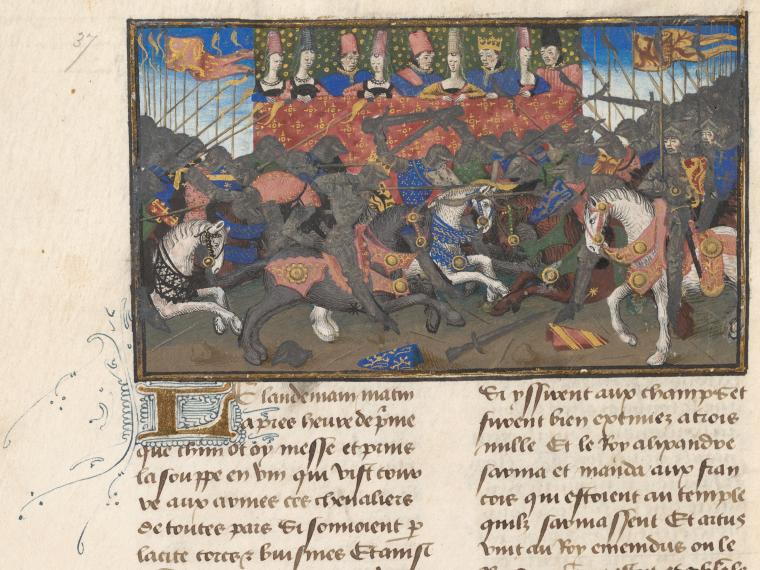 37
Lendemain matin
apres heure de pme
que chun ot oy messe et prins
la souppe en vin qui vist couv
re aux armes ces chevaliers
de toutes pars Si sonnoient p
la cite cors et buisines Et ainsi
Si yssirent aux champs et
furent bien extimez a trois
mille Et le Roy alixandre
sarma et manda aux fran
cois qui estoient au temple
quilz sarmassent Et artus
vint au Roy emenidus ou le